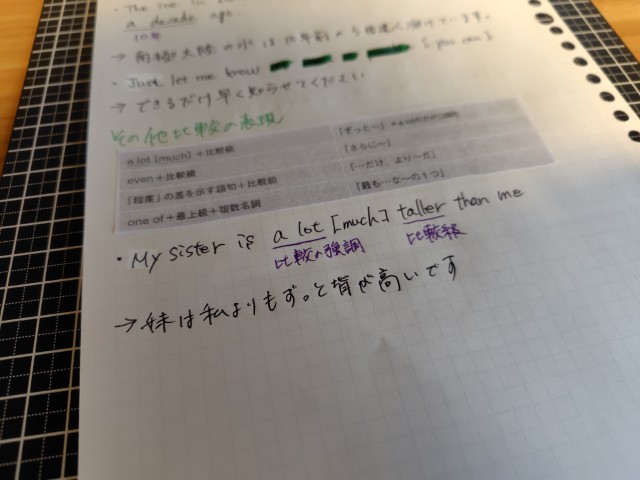 ・The ice in
a decade ago.
10年
→ 南極大陸の氷は10年前の5倍速く溶けています。
・Just let me know [you can]
→ できるだけ早く知らせてください
その他比較の表現
a lot [much]＋比較級 「ずっと～」
even＋比較級 「さらに～」
「程度」の差を示す語句＋比較級 「…だけ、より～だ」
one of＋最上級＋複数名詞 「最も…な～の1つ」
・My sister is a lot [much] taller than me
比較の強調 比較級
→ 妹は私よりもずっと背が高いです